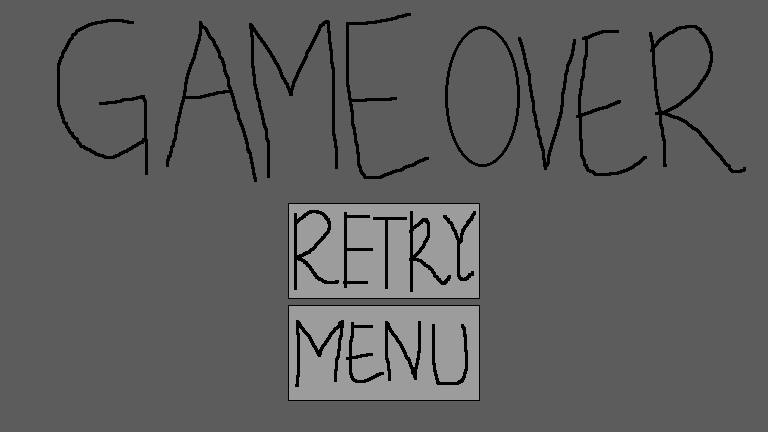 GAME OVER
RETRY
MENU